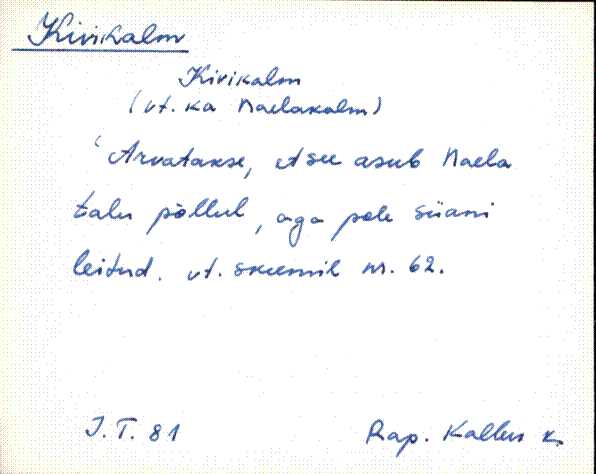 Kivikalm
Kivikalm
(vt. ka Naelakalm)
Arvatakse, et see asub Naela
talu põllul, aga pole siiani
leitud. vt. skeemil nr. 62.
J.T. 81
Rap. Kallu k.